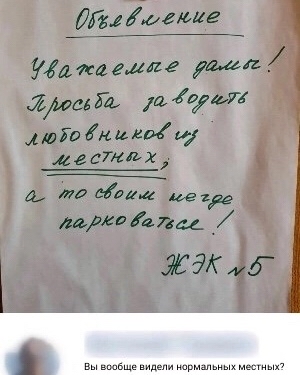 Объявление
Уважаемые дамы!
Просьба заводить
любовников из
местных,
а то своим негде
парковаться!
ЖЭК №5
Вы вообще видели нормальных местных?